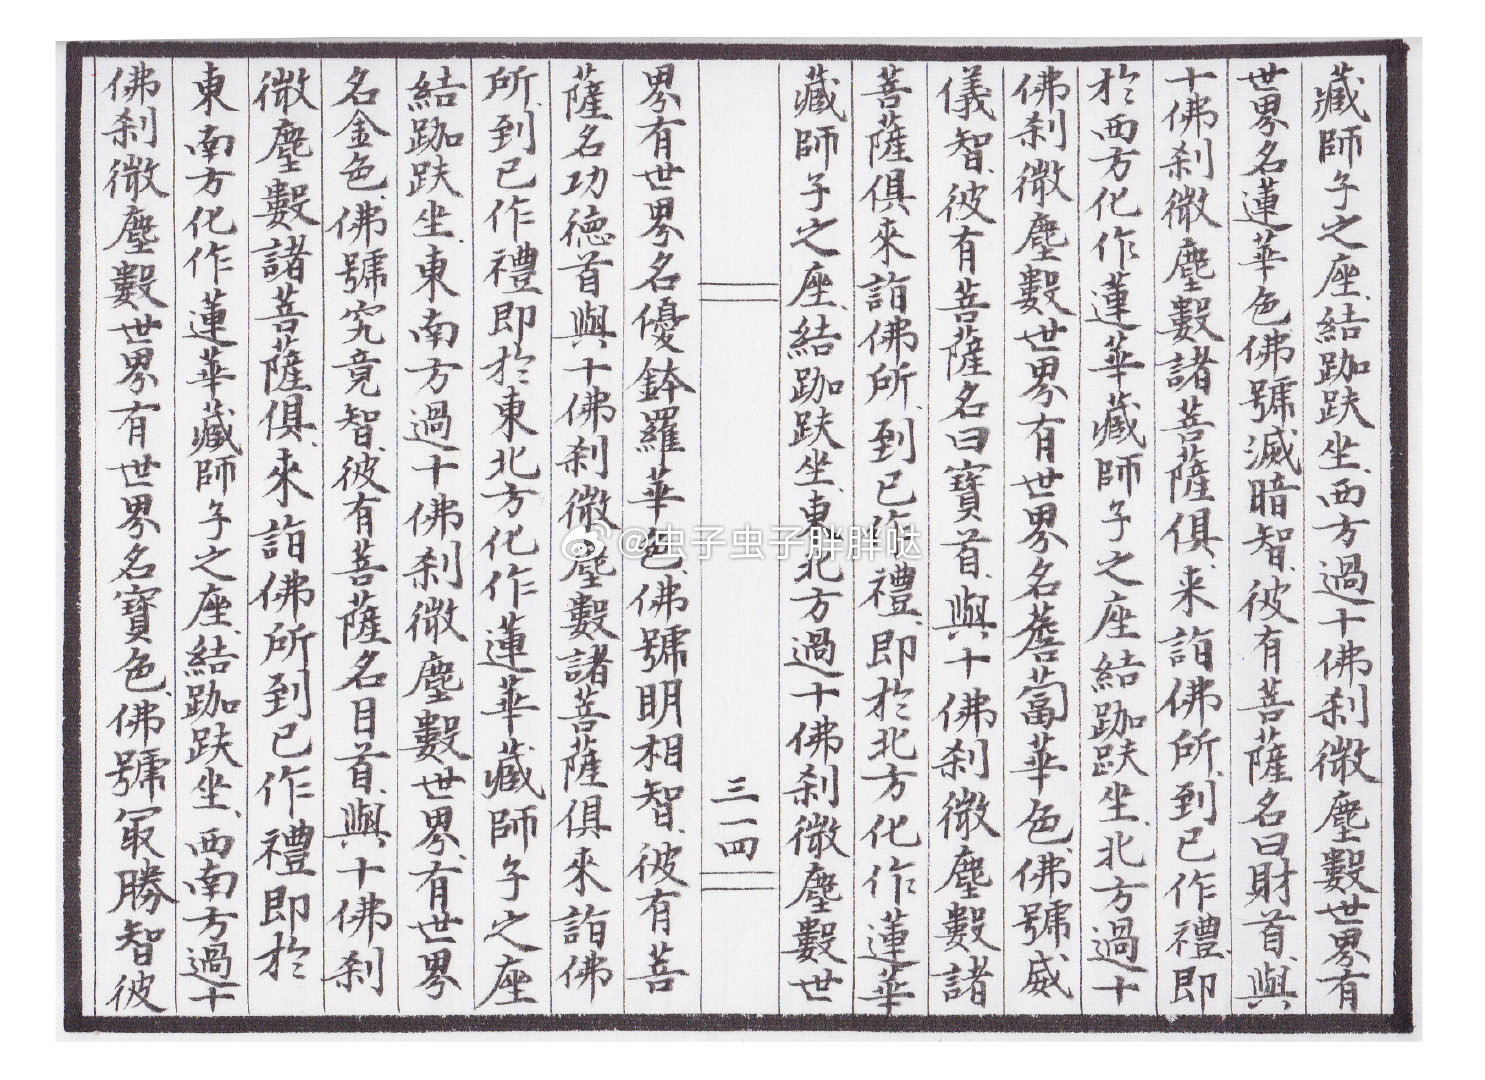 藏師子之座、結跏趺坐、西方過十佛刹微塵數世界有
世界名蓮華色、佛號滅暗智、彼有菩薩名曰財首、與
十佛刹微塵數諸菩薩俱、来詣佛所、到已作禮、即
於西方化作蓮華藏師子之座結跏趺坐、北方過十
佛刹微塵數世界有世界名薝蔔華色、佛號威
儀智、彼有菩薩名曰寶首、與十佛刹微塵數諸
菩薩俱來詣佛所、到已作禮、即於北方化作蓮華
藏師子之座、結跏趺坐、東北方過十佛刹微塵數世
三一四
界有世界名優鉢羅華色、佛號明相智、彼有菩
薩名功德首與十佛刹微塵數諸菩薩俱來詣佛
所、到已作禮即於東北方化作蓮華藏師子之座
結跏趺坐、東南方過十佛刹微塵數世界、有世界
名金色、佛號究竟智、彼有菩薩名目首、與十佛刹
微塵數諸菩薩俱、來詣佛所到已作禮即於
東南方化作蓮華藏師子之座、結跏趺坐、西南方過十
佛刹微塵數世界有世界名寶色、佛號最勝智彼
@虫子虫子胖胖哒